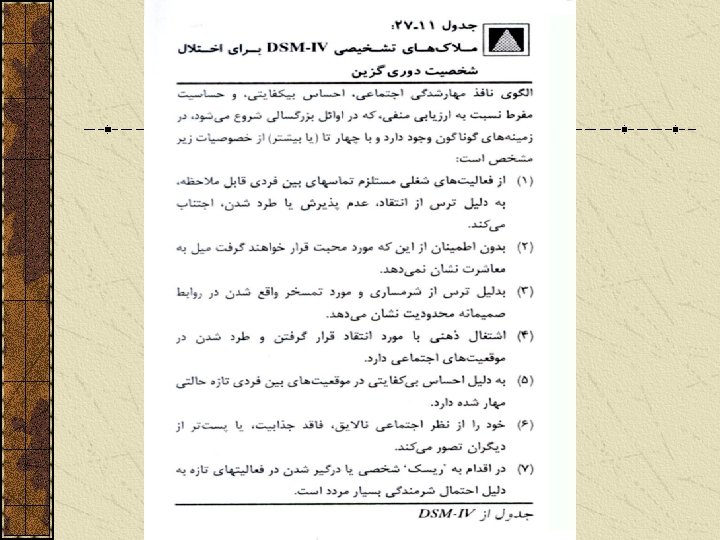 جدول ۱۱ـ۲۷:
مـلاک‌هـای تشـخیصی DSM-IV بـرای اخـتلال
شخصیت دوری‌گزین
الگوی نافذ مهارشدگی اجتماعی، احساس بیکفایتی، و حساسیت
مفرط نسبت به ارزیابی منفی، که در اوائل بزرگسالی شروع می‌شود، در
زمینه‌های گوناگون وجود دارد و با چهار تا (یا بیشتر) از خصوصیات زیر
مشخص است:
(۱) از فعالیت‌های شغلی مستلزم تماسهای بین فردی قابل ملاحظه،
به دلیل ترس از انتقاد، عدم پذیرش یا طرد شدن، اجتناب
می‌کند.
(۲) بدون اطمینان از این که مورد محبت قرار خواهند گرفت میل به
معاشرت نشان نمی‌دهد.
(۳) بدلیل ترس از شرمساری و مورد تمسخر واقع شدن در روابط
صمیمانه محدودیت نشان می‌دهد.
(۴) اشتغال ذهنی با مورد انتقاد قرار گرفتن و طرد شدن در
موقعیت‌های اجتماعی دارد.
(۵) به دلیل احساس بی‌کفایتی در موقعیت‌های بین فردی تازه حالتی
مهار شده دارد.
(۶) خود را از نظر اجتماعی نالایق، فاقد جذابیت، یا پست‌تر از
دیگران تصور می‌کند.
(۷) در اقدام به 'ریسک' شخصی یا درگیر شدن در فعالیتهای تازه به
دلیل احتمال شرمندگی بسیار مردد است.
جدول از DSM-IV